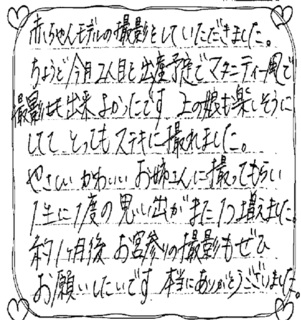 赤ちゃんモデルの撮影をしていただきました。
ちょうど今月2人目を出産予定でマタニティー風で
撮影も出来よかったです 上の娘も楽しそうに
してて とってもステキに撮れました。
やさしい かわいい お姉さんに撮ってもらい
1生に1度の思い出がまた1つ増えました
約1ヶ月後 お宮参りの撮影もぜひ
お願いしたいです 本当にありがとうございました。